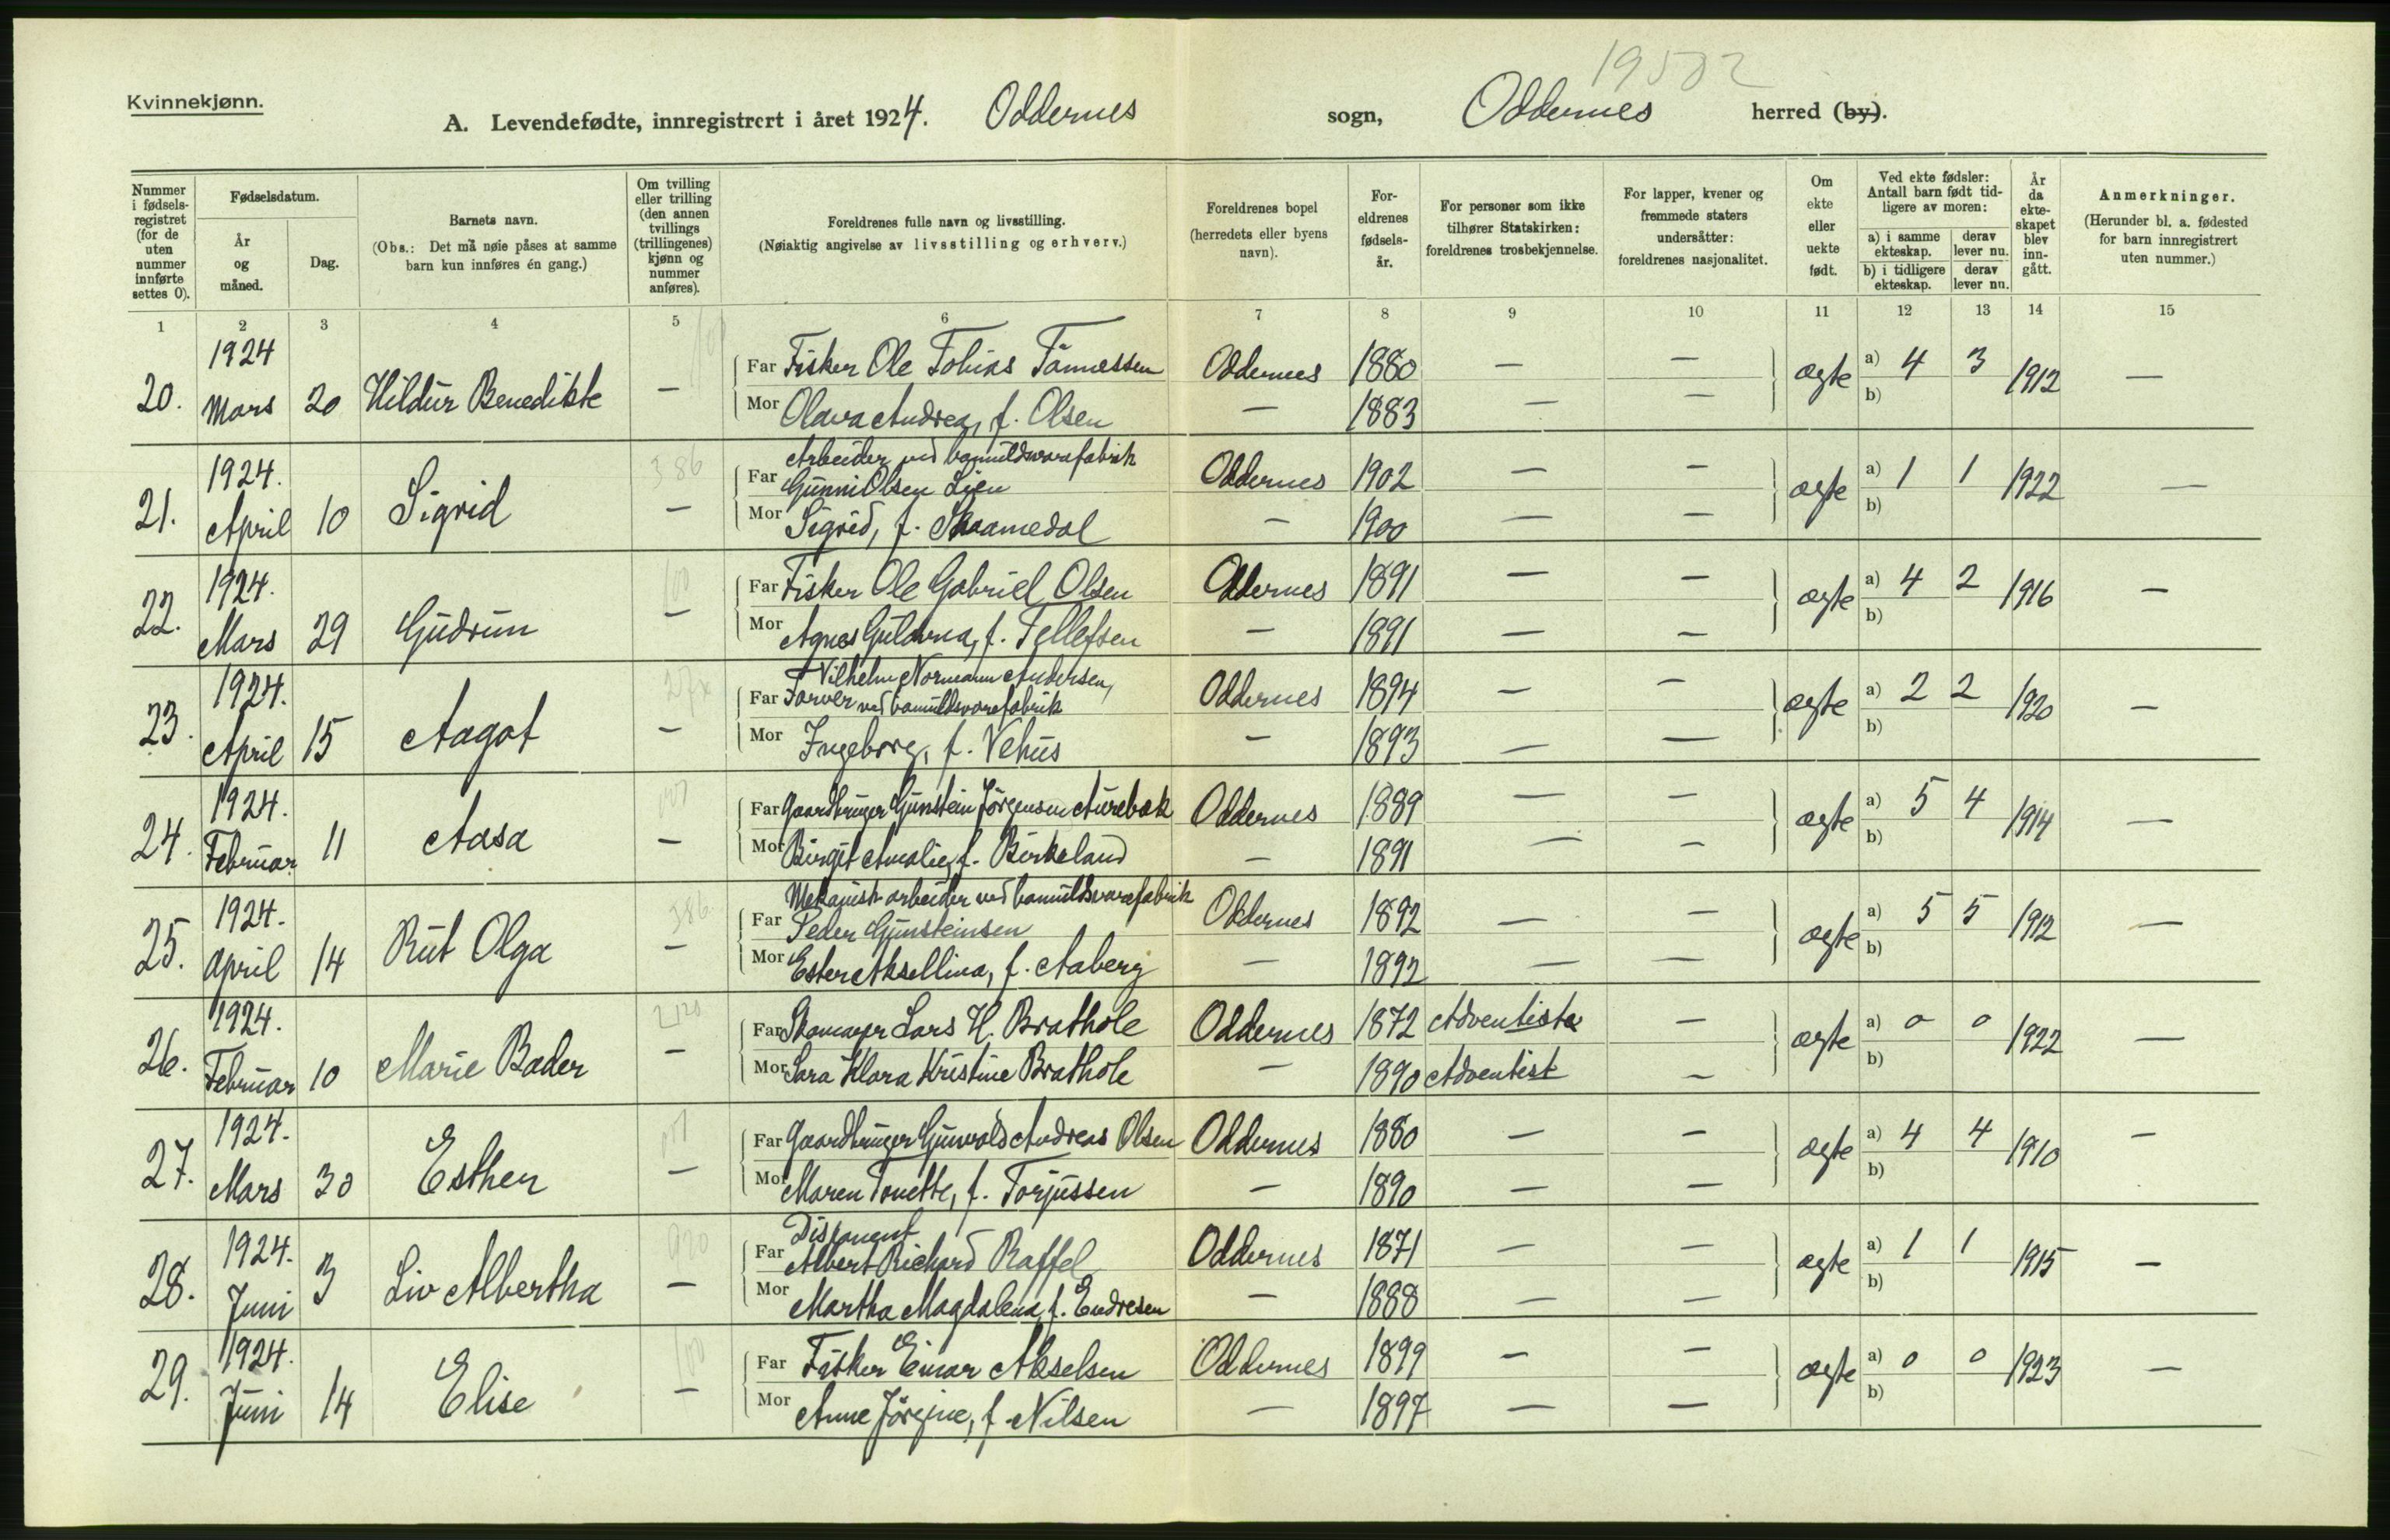 19502
Kvinnekjønn.
A. Levendefødte, innregistrert i året 1924. Oddernes sogn, Oddernes herred (by).
Nummer i fødselsregistret (for de uten nummer innførte settes 0).
Fødselsdatum.
År og måned.
Dag.
Barnets navn.
(Obs.: Det må nøie påses at samme barn kun innføres én gang.)
Om tvilling eller trilling (den annen tvillings (trillingenes) kjønn og nummer anføres).
Foreldrenes fulle navn og livsstilling.
(Nøiaktig angivelse av livsstilling og erhverv.)
Foreldrenes bopel (herredets eller byens navn).
Foreldrenes fødselsår.
For personer som ikke tilhører Statskirken: foreldrenes trosbekjennelse.
For lapper, kvener og fremmede staters undersåtter: foreldrenes nasjonalitet.
Om ekte eller uekte født.
Ved ekte fødsler: Antall barn født tidligere av moren:
a) i samme ekteskap. derav lever nu.
b) i tidligere ekteskap. derav lever nu.
År da ekteskapet blev inngått.
Anmerkninger.
(Herunder bl. a. fødested for barn innregistrert uten nummer.)
1 2 3 4 5 6 7 8 9 10 11 12 13 14 15
20. 1924 Mars 20 Hildur Benedikte — 100 Far Fisker Ole Tobias Tønnessen Oddernes 1880 — — ægte a) 4 3 1912 —
Mor Olava Andrea, f. Olsen — 1883 — — b)
21. 1924. April 10 Sigrid — 386 Arbeider ved bomuldsvarefabrik
Far Gunni Olsen Lien Oddernes 1902 — — ægte a) 1 1 1922 —
Mor Sigrid, f. Skaamedal — 1900 — — b)
22. 1924. Mars 29 Gudrun — 100 Far Fisker Ole Gabriel Olsen Oddernes 1891 — — ægte a) 4 2 1916 —
Mor Agnes Gutorma, f. Tellefsen — 1891 — — b)
23. 1924. April 15 Aagot — Vilhelm Normann Andersen,
Far Farver ved bomuldsvarefabrik Oddernes 1894 — — ægte a) 2 2 1920 —
Mor Ingeborg, f. Vehus — 1893 — — b)
24. 1924. Februar 11 Aasa — Far Gaardbruger Gunstein Jörgensen Aurebæk Oddernes 1889 — — ægte a) 5 4 1914 —
Mor Birgit Amalie, f. Birkeland — 1891 — — b)
25. 1924. April 14 Rut Olga — 386 Mekanisk arbeider ved bomuldsvarefabrik
Far Peder Gunsteinsen Oddernes 1892 — — ægte a) 5 5 1912 —
Mor Ester Aksellina, f. Aaberg — 1892 — — b)
26. 1924. Februar 10 Marie Bader — Far Skomager Lars H. Brathole Oddernes 1872 Adventist — ægte a) 0 0 1922 —
Mor Sara Klara Kristine Brathole — 1890 Adventist — b)
27. 1924. Mars 30 Esther — Far Gaardbruger Gunvald Andreas Olsen Oddernes 1880 — — ægte a) 4 4 1910 —
Mor Maren Tonette, f. Torjussen — 1890 — — b)
28. 1924. Juni 3 Liv Albertha — 920 Disponent
Far Albert Richard Raffel Oddernes 1871 — — ægte a) 1 1 1915 —
Mor Martha Magdalena, f. Endresen — 1888 — — b)
29. 1924. Juni 14 Elise — 100 Far Fisker Einar Akselsen Oddernes 1899 — — ægte a) 0 0 1923 —
Mor Anne Jörgine, f. Nilsen — 1897 — — b)